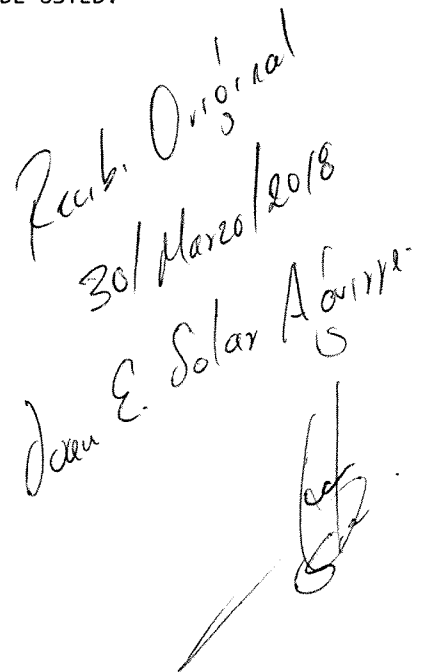 DE USTED.
Recibi Original
30/Marzo/2018
Juan E. Solar Aguirre